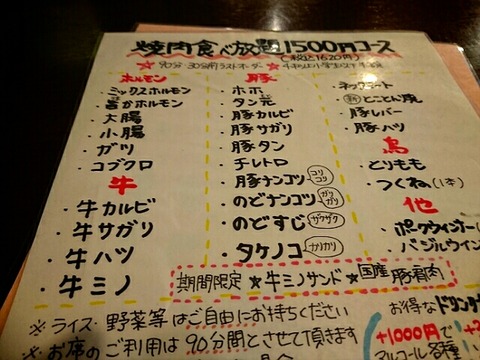 焼肉食べ放題1500円コース
(税込1620円)
★90分・30分前ラストオーダー
ホルモン
・ミックスホルモン
・大腸
・小腸
・ガツ
・コブクロ
牛
・牛カルビ
・牛サガリ
・牛ハツ
・牛ミノ
豚
・ホホ
・タン元
・豚カルビ
・豚サガリ
・豚タン
・チレトロ
・豚ナンコツ コリコリ
・のどナンコツ ガリガリ
・のどすじ ザクザク
・タケノコ カリカリ
・豚レバー
・豚ハツ
鳥
・とりもも
・つくね(1本)
他
・ポークウィンナー
・バジルウイン
期間限定 ★牛ミノサンド★国産豚肩肉
※ライス・野菜等はご自由にお持ちください
※お席のご利用は90分間とさせて頂きます
お得なドリンク
+1000円で
アルコール各種